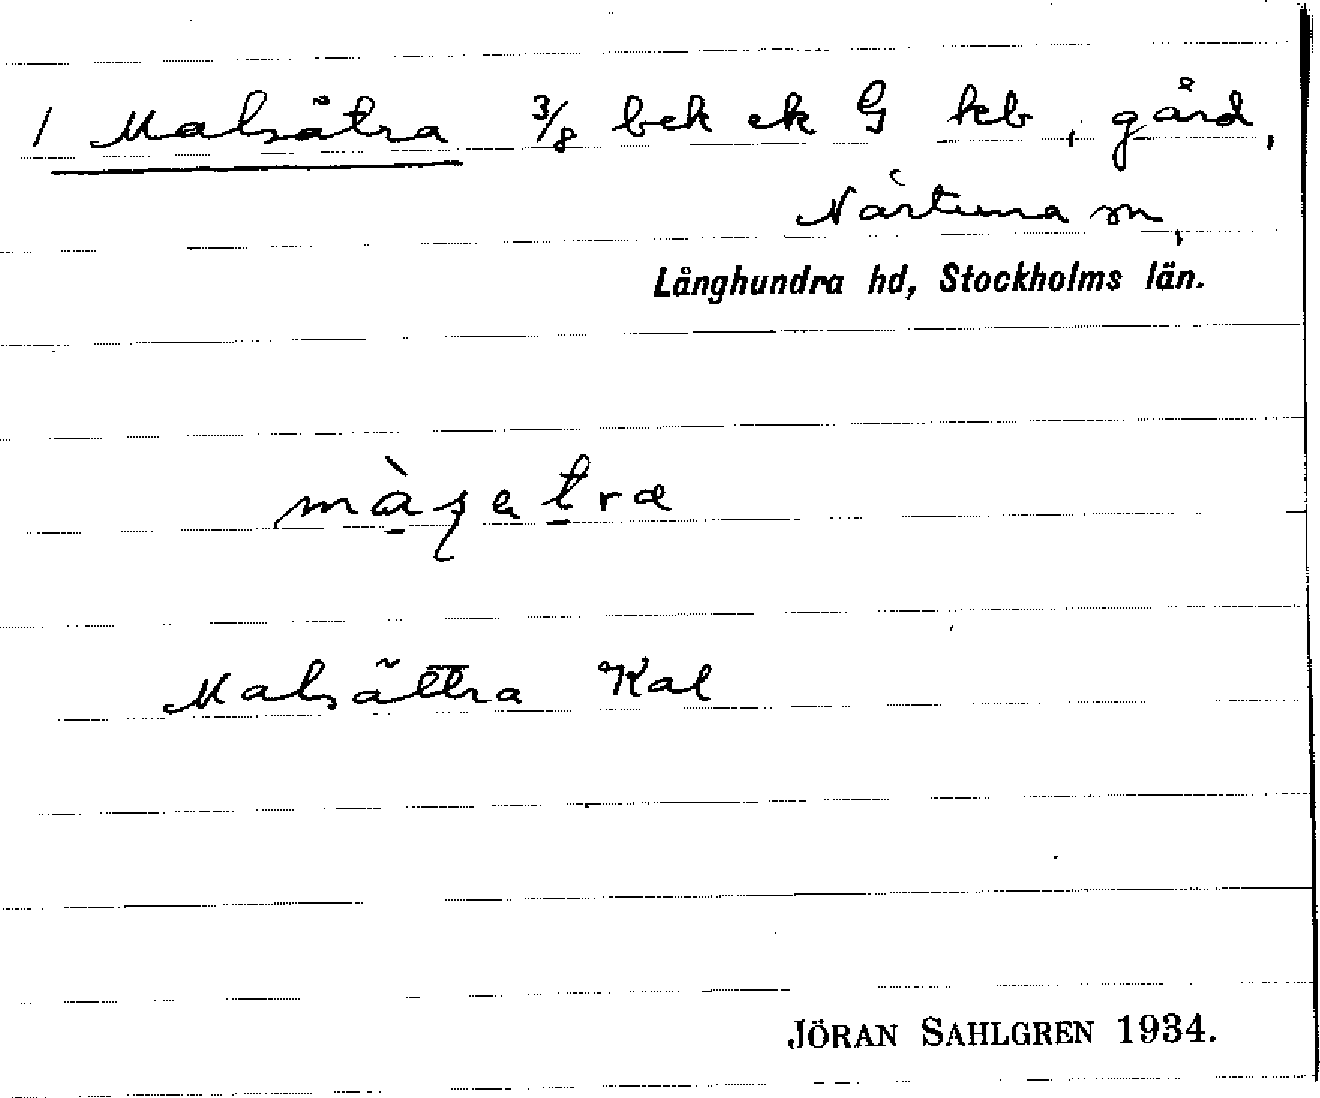 1 Malsätra 3/8 bek ek G kb, gård,
Närtuna sn,
Långhundra hd, Stockholms län.
Malsättra Kal
JÖRAN SAHLGREN 1934.